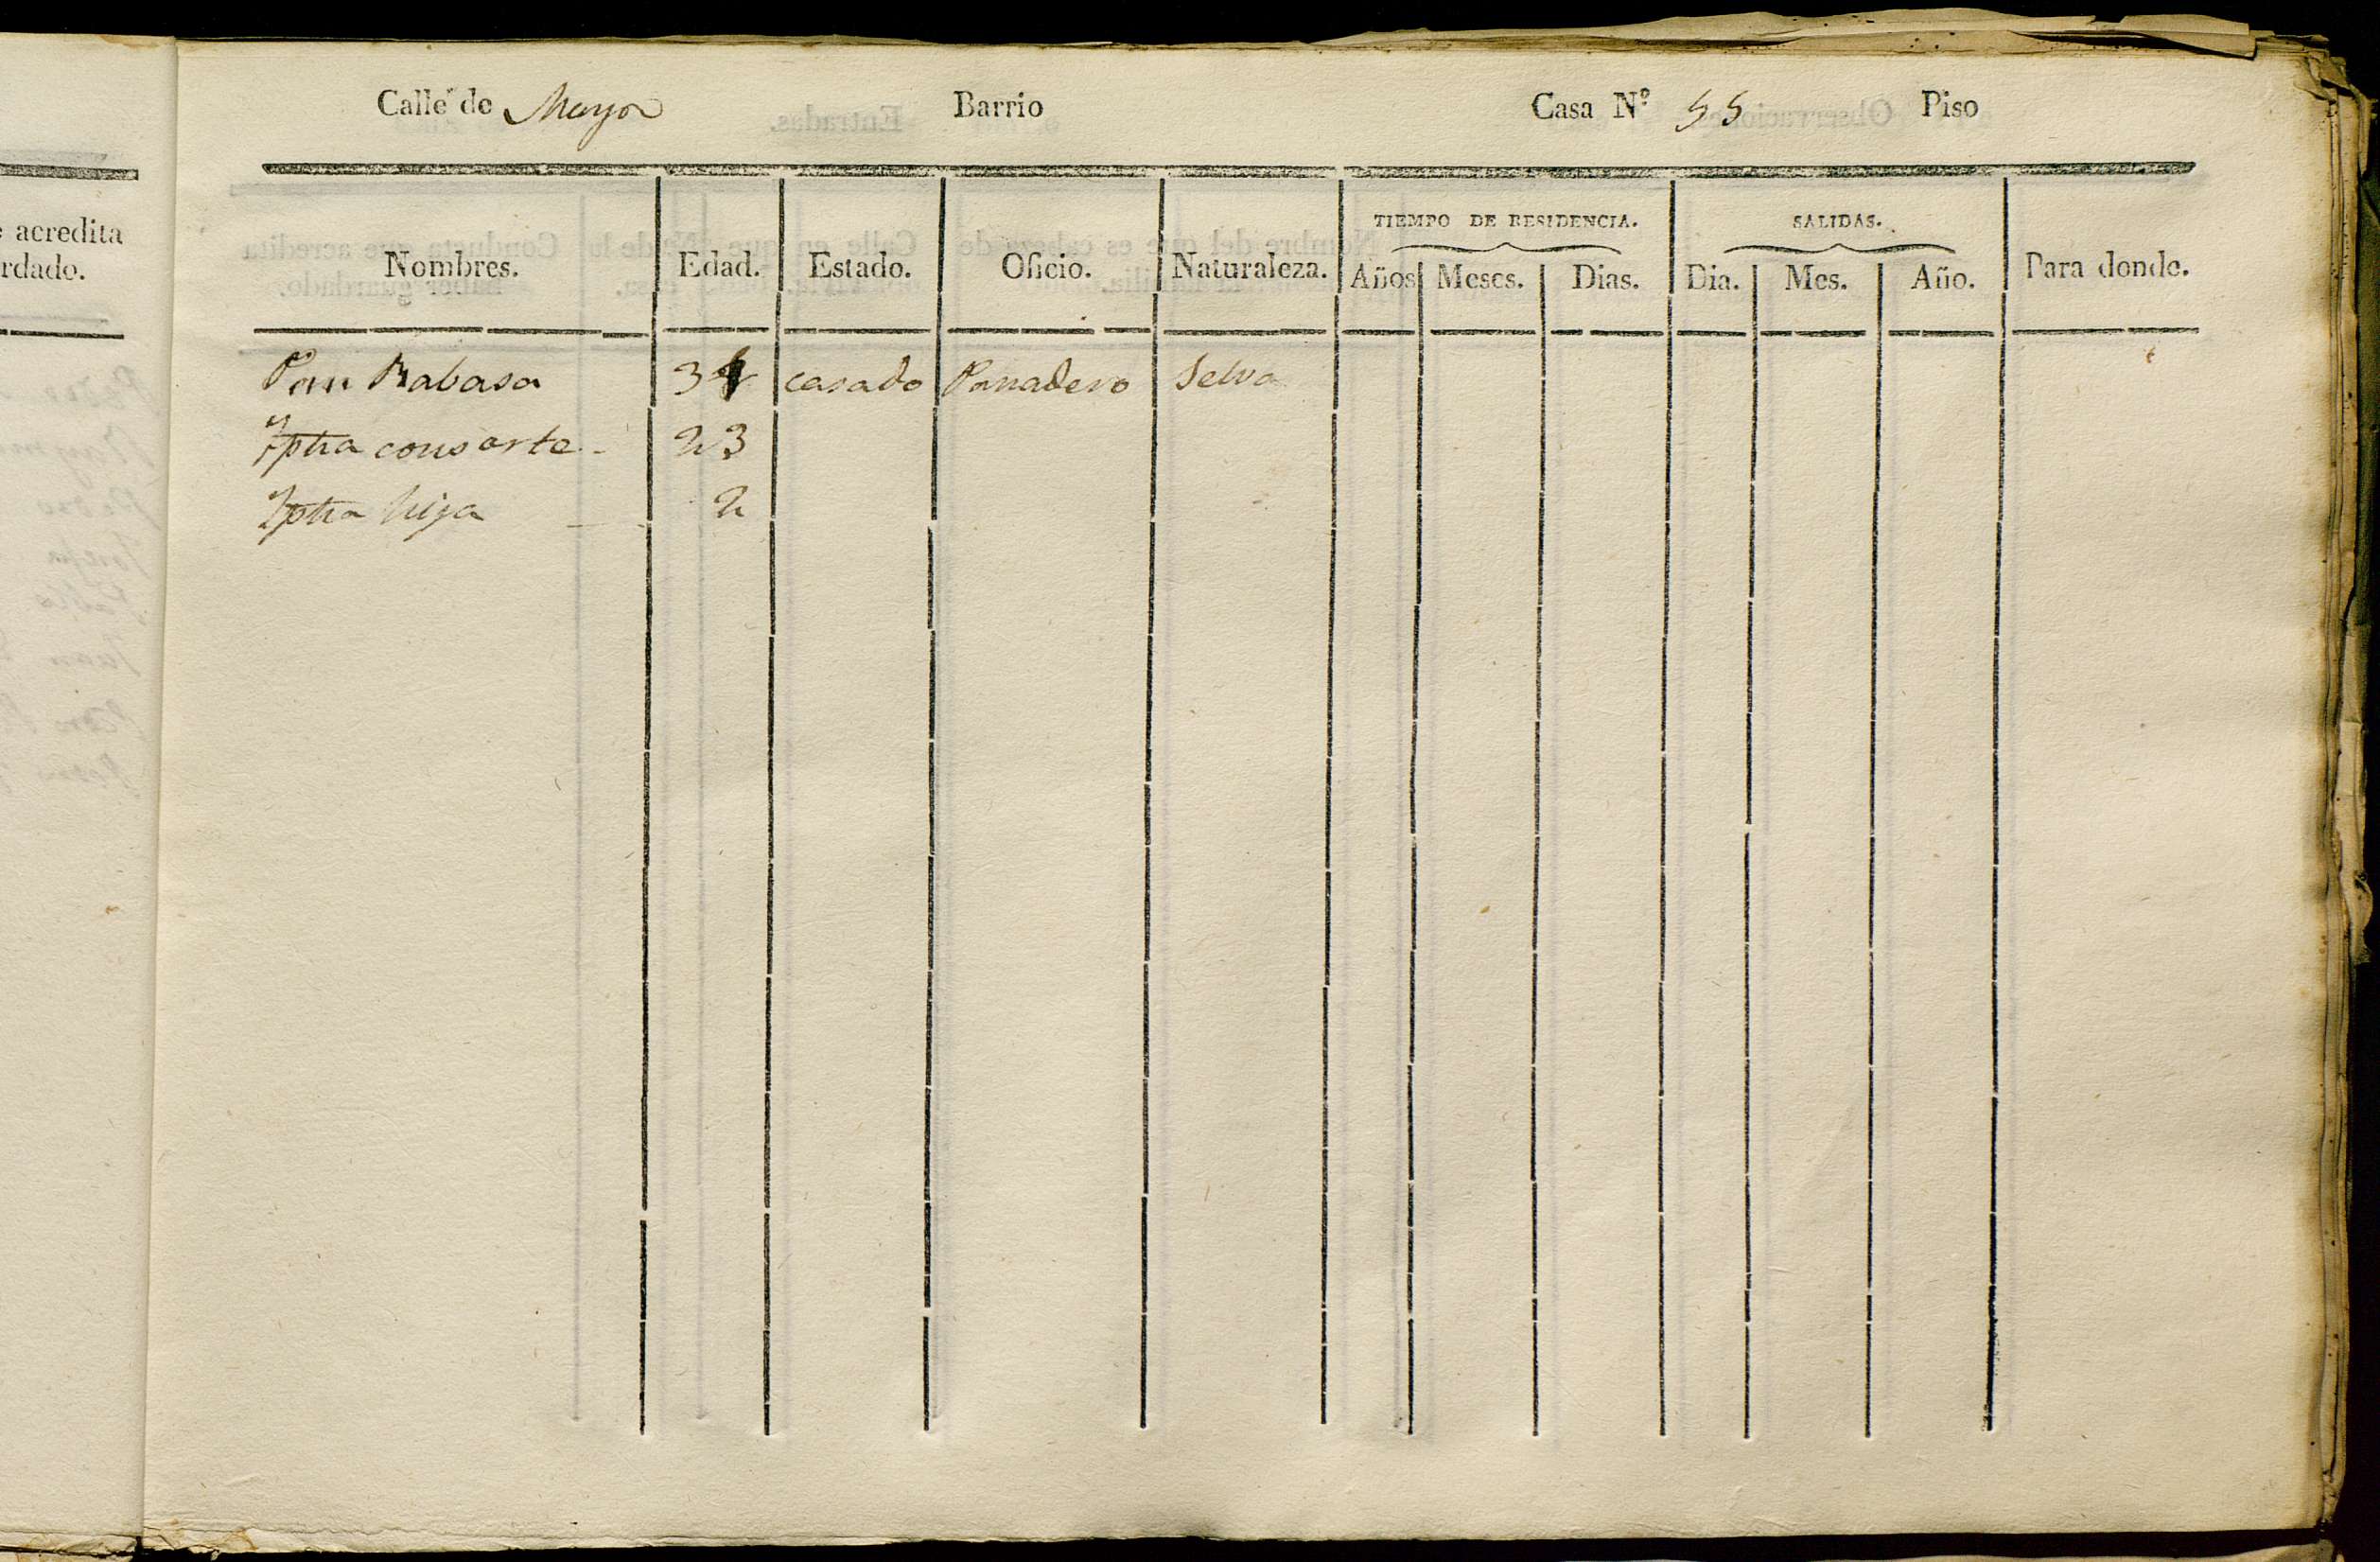 acredita
rdado.
Calle de Mayor Barrio Casa Nº 55 Piso
TIEMPO DE RESIDENCIA. SALIDAS.
Nombres. Edad. Estado. Oficio. Naturaleza. Años Meses. Dias. Dia. Mes. Año. Para donde.
Pau Rabasa casado Panadero Selva
Tpha consorte 23
Tpha hija 2